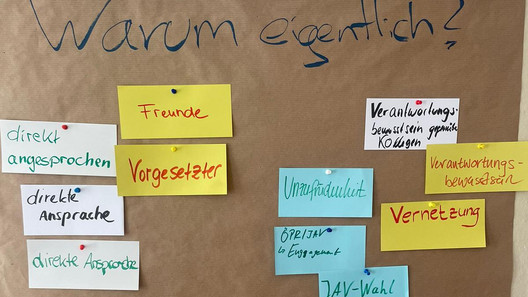 Warum eigentlich?
direkt
angesprochen
direkte
Ansprache
direkte Ansprache
Freunde
Vorgesetzter
Unzufriedenheit
ÖPR/JAV
Engagement
JAV-Wahl
Verantwortungs-
bewusstsein gegenüber
Kollegen
Verantwortungs-
bewusstsein
Vernetzung